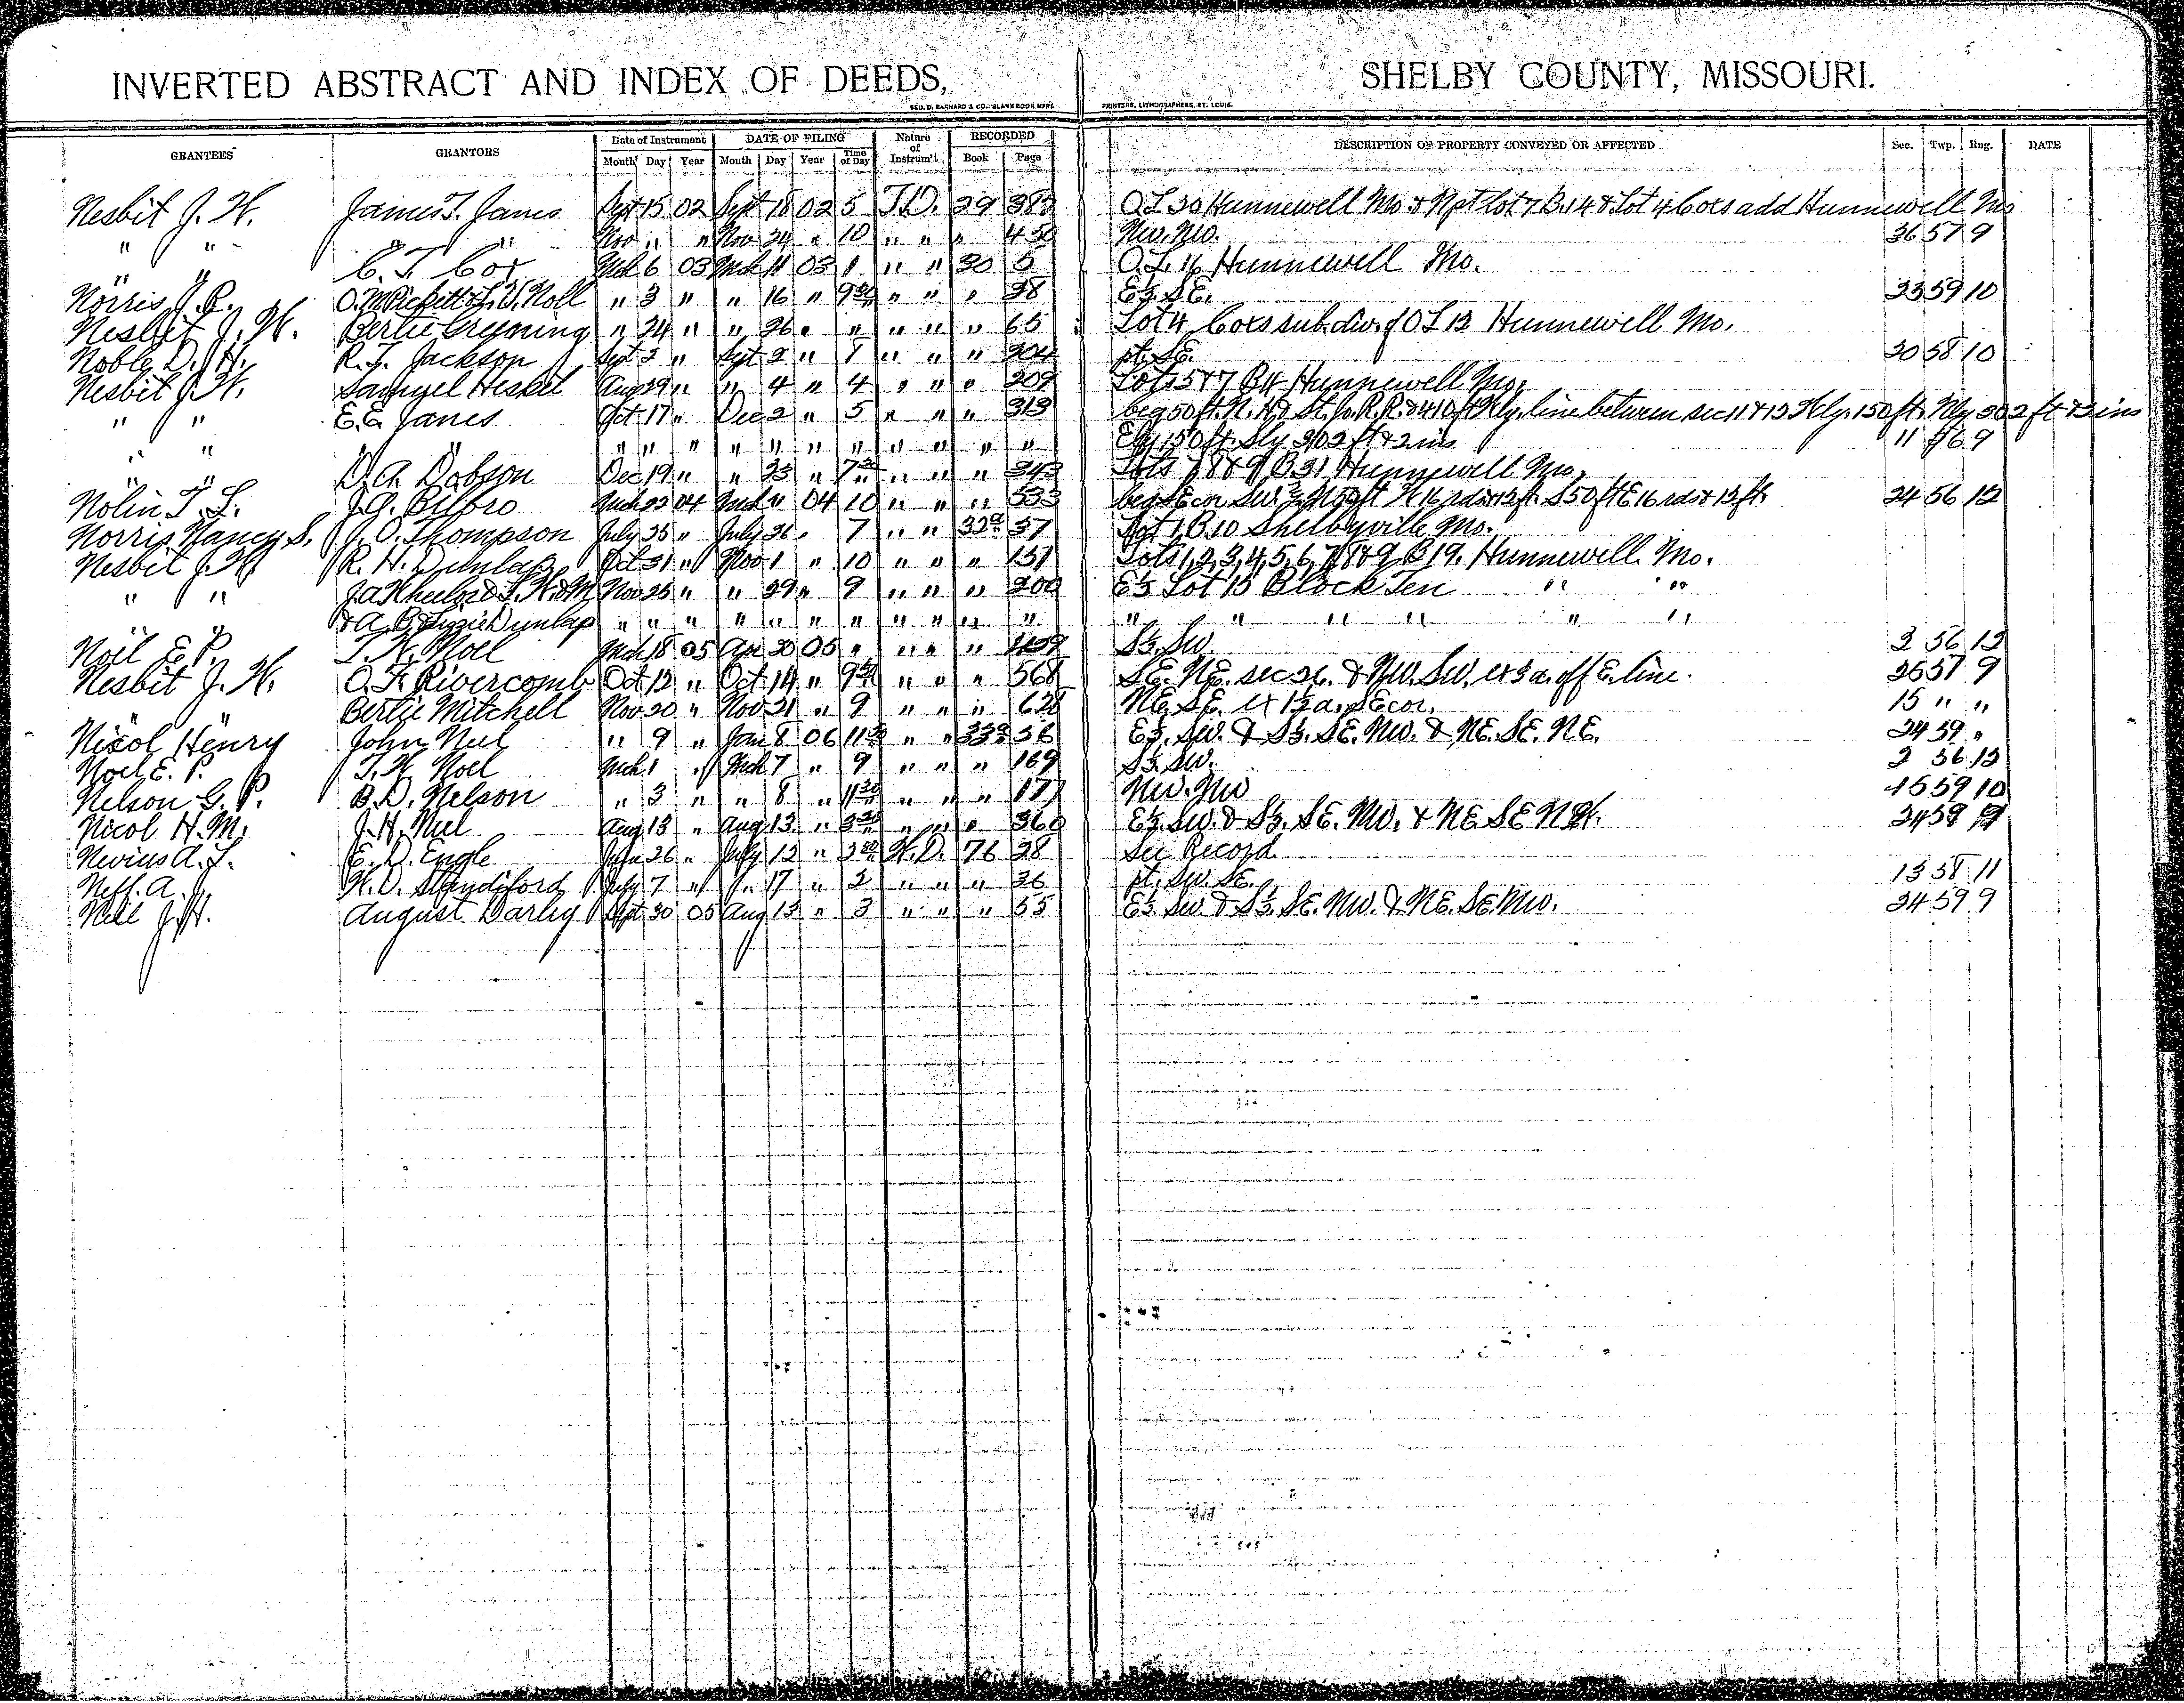 INVERTED ABSTRACT AND INDEX OF DEEDS, SHELBY COUNTY, MISSOURI.
GEO. D. BARNARD & CO., BLANK BOOK MFRS. PRINTERS, LITHOGRAPHERS, ST. LOUIS.
GRANTEES GRANTORS Date of Instrument DATE OF FILING Nature of Instrum't RECORDED DESCRIPTION OF PROPERTY CONVEYED OR AFFECTED Sec. Twp. Rng. DATE
Month Day Year Month Day Year Time of Day Book Page
Nesbit J. H. James T. Janes Sept 15 02 Sept 18 02 5 T.D. 29 383 O L 30 Hunnewell Mo & N pt Lot 7 B. 14 & Lot 4 Coxs add Hunnewell Mo
" " " " Nov " " Nov 24 " 10 " " " 450 Nw. Nw. 36 57 9
" " C. T. Cox Mch 6 03 Mch 11 03 1 " " 30 5 O. L. 16 Hunnewell Mo.
Norris J. R. " 3 " " 16 " 9 30 " " " 38 E½ SE. 33 59 10
Nesbit J. H. Bertie Greyning " 24 " " 26 " " " " " 65 Lot 4 Coxs sub. div. of O L 13 Hunnewell Mo.
Noble D. H. R. T. Jackson Sept 2 " Sept 2 " 1 " " " 204 pt. SE. 30 58 10
Nesbit J. H. Samuel Heskel Aug 29 " " 4 " 4 " " " 209 Lots 5 & 7 B 4 Hunnewell Mo.
" " E. E. Janes Oct 17 " Dec 2 " 5 " " " 313 beg 50 ft. N. H & St. Jo R.R. & 410 ft Wly. line between sec 11 & 12 Wly. 150 ft. Nly 302 ft & 2 ins
" " " " " " " " " " " " " Ely 150 ft. Sly 302 ft & 2 ins 11 56 9
" " D. A. Dobson Dec 19 " " 23 " 7 30 " " " 343 Lots 7 8 & 9 B 31 Hunnewell Mo.
Nolin T. L. J. G. Bilbro Mch 22 04 Mch " 04 10 " " " 533 beg SE cor Sw. ¼ N 50 ft W 16 rds & 12 ft. S 50 ft E 16 rds & 12 ft. 24 56 12
Norris Nancy S. J. O. Thompson July 25 " July 26 " 7 " " 32 57 Lot 1 B. 10 Shelbyville Mo.
Nesbit J. H. R. H. Dunlap Oct 31 " Nov 1 " 10 " " " 151 Lots 1, 2, 3, 4, 5, 6, 7, 8 & 9 B 19. Hunnewell Mo.
" " Nov 25 " " 29 " 9 " " " 200 E½ Lot 15 Block Ten " "
" & A. B. Lizzie Dunlap " " " " " " " " " " " " " " " " "
Noel E. P. T. H. Noel Mch 18 05 Apr 20 05 " " " " S½ Sw. 2 56 12
Nesbit J. H. O. F. Rivercomb Oct 12 " Oct 14 " 9 30 " " " 568 SE. NE. sec 26. & Nw. Sw. ex 3 a. off E. line. 25 57 9
" " Bertie Mitchell Nov 20 " Nov 21 " 9 " " " 628 NE. SE. ex 1½ a. SE cor. 15 " "
Nicol Henry John Neel " 9 " Jan 8 06 11 " " 33 56 E½. Sw. & S½. SE. Nw. & NE. SE. NE. 24 59 "
Noel E. P. T. H. Noel Mch 1 " Mch 7 " 9 " " " 169 S½ Sw. 2 56 12
Nelson G. P. B. D. Nelson " 3 " " 8 " 11 30 " " " 177 Nw. Nw 15 59 10
Nicol H. M. J. H. Neel Aug 13 " Aug 13 " 3 30 " " " 360 E½. Sw. & S½. SE. Nw. & NE SE NW. 24 59 9
Nevius A. J. E. D. Engle Jan 26 " July 12 " W. D. 76 28 See Record
Neff. A. J. W. O. Standiford July 7 " " 17 " 2 " " " 36 pt. Sw. SE. 13 58 11
Nell J. H. August Darley Sept 30 05 Aug 13 " 3 " " " 55 E½. Sw. & S½. SE. Nw. & NE. SE. Nw. 24 59 9